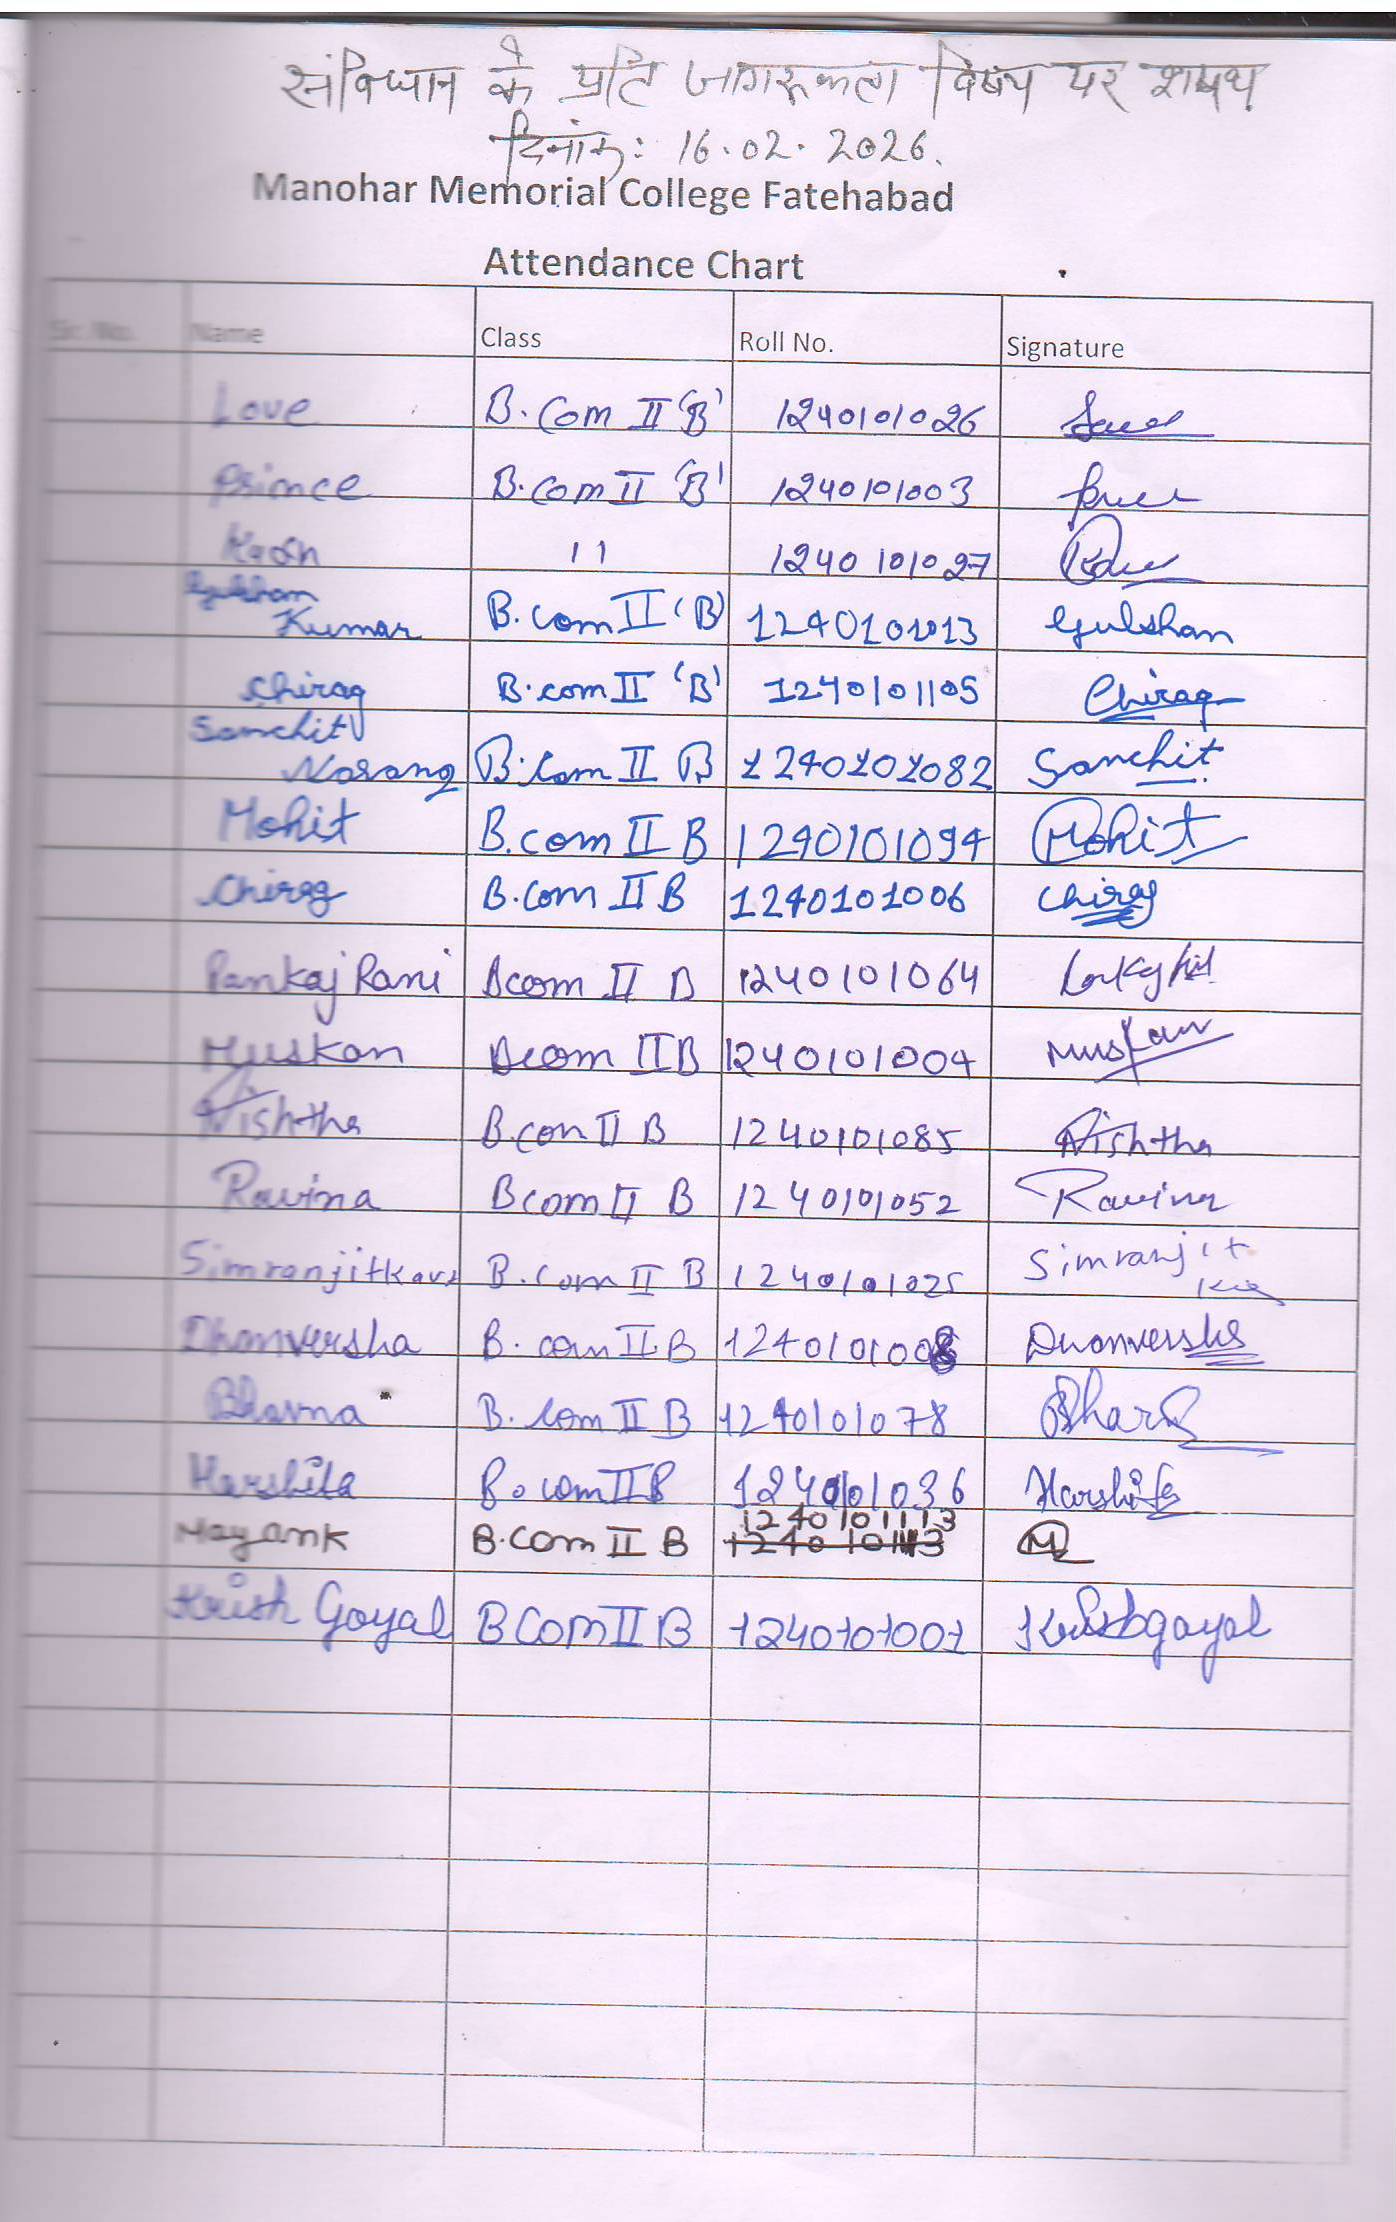 संविधान के प्रति जागरूकता विषय पर शपथ
दिनांक: 16.02.2026.
Manohar Memorial College Fatehabad
Attendance Chart
Sr. No. Name Class Roll No. Signature
Love B.Com II 'B' 1240101026
Prince B.Com II 'B' 1240101003
11 1240101027
Gulshan
Kumar B.com II 'B' 1240101013 Gulshan
Chirag B.com II 'B' 1240101105 Chirag
Sanchit
Narang B.Com II B 1240101082 Sanchit
Mohit B.com II B 1240101094 Mohit
Chirag B.Com II B 1240101006 Chirag
Pankaj Rani Bcom II B 1240101064
Muskan Bcom II B 1240101004 Muskan
Nishtha B.con II B 1240101085 Nishtha
Ravina Bcom II B 1240101052 Ravina
Simranjitkaur B.Com II B 1240101025 Simranjit
Dhanversha B.com II B 1240101008 Dhanversha
Bhavna B.Com II B 1240101078
Harshita B.com II B 1240101036 Harshita
1240101113
Mayank B.Com II B 1240101113 M
Krish Goyal BCOM II B 1240101001 Krishgoyal